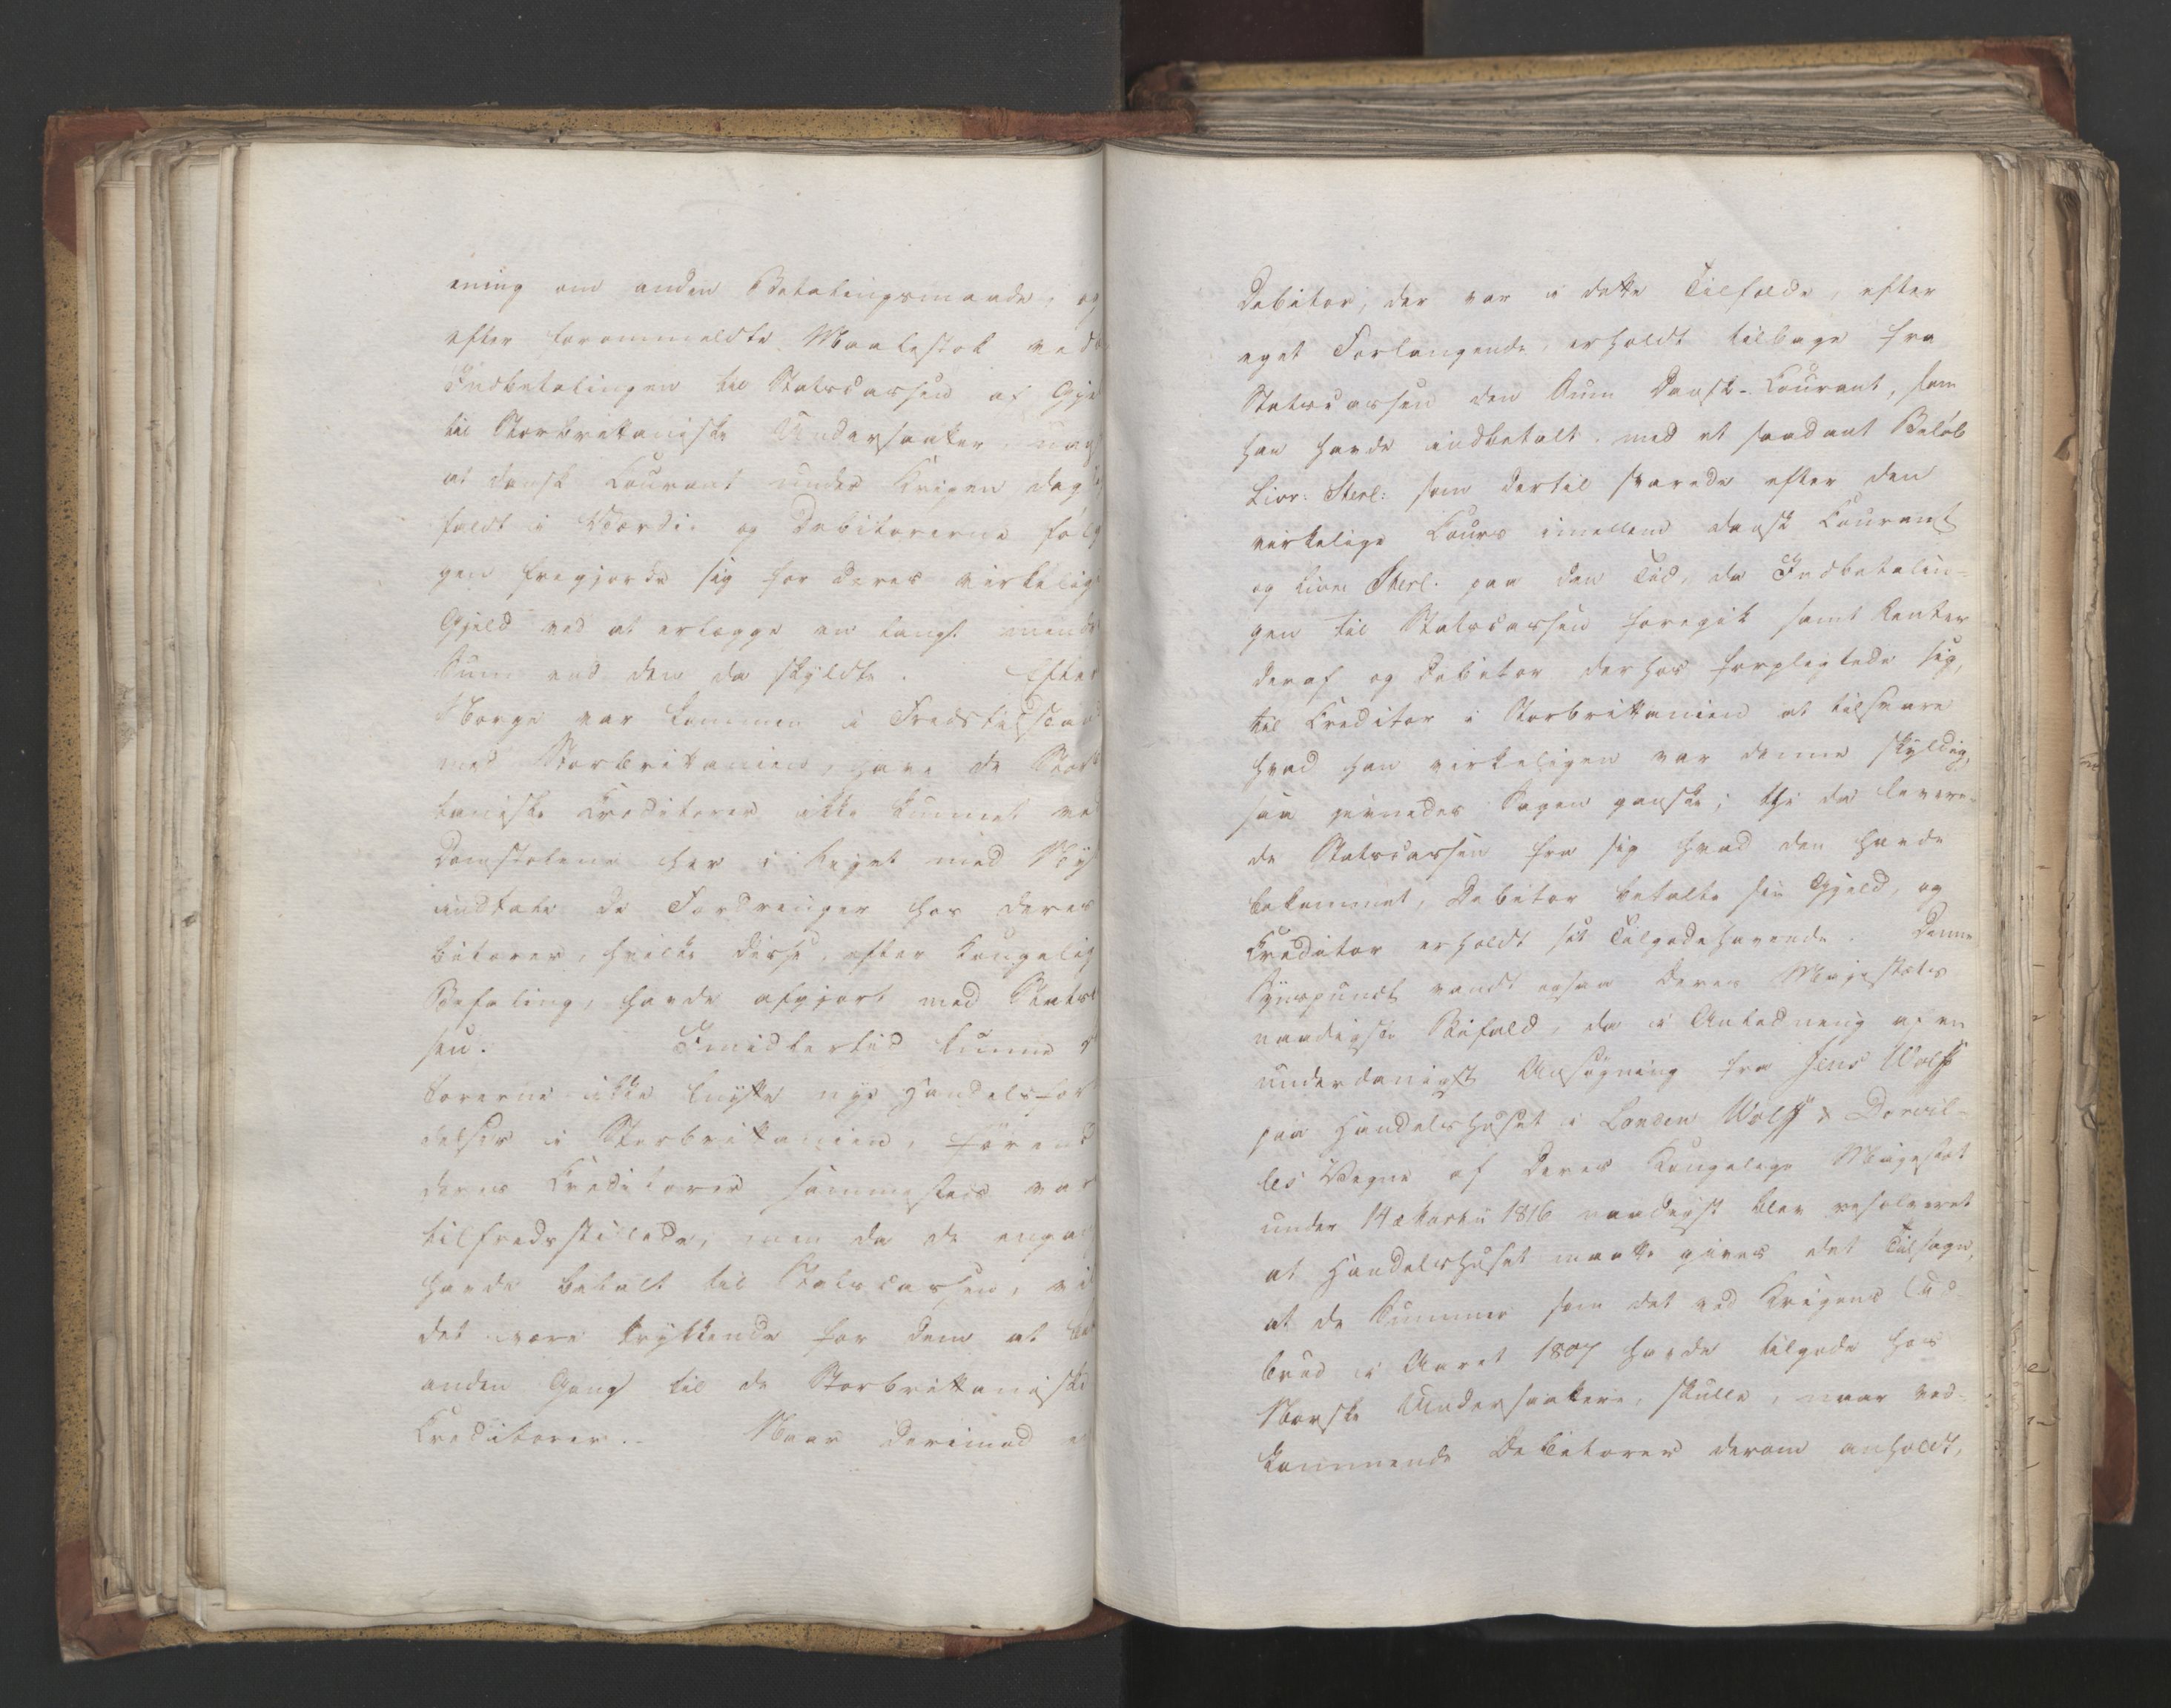 ening om anden Betalingsmaade, og
efter forommeldte Maalestok ved
Indbetalingen til Statscassen af Gje
til Storbrittaniske Undersaatter uag
at dansk Courant under Krigen dag
faldt i Værdie og Debitorerne følg
gen frigjorde sig for deres virkelig
Gjeld ved at erlægge en langt mind
Sum end den da skyldte. Efter
Norge var kommen i Fredstilstand
med Storbritanien, have de Storb
taniske Creditorer ikke kunnet ved
Domstolene her i Riget med Nÿ
indtale de Fordringer hos deres
bitorer, hvilke disse, efter Kongelig
Befaling, havde afgjort med Stats
sen. Imidlertid kunne
torerne ikke knytte nye Handelsfor
delser i Storbrittanien, førend
deres Creditorer sammesteds var
tilfredsstillede, men da de engan
havde betalt til Statscassen, vil
det være trykkende for dem at bet
anden Gang til de Storbrittaniske
Creditorer. Naar derimod e
Debitor, der var i dette Tilfælde, efter
eget Forlangende, erholdt tilbage fra
Statscassen den Sum Dansk-Courant, som
han havde indbetalt, med et saadant Beløb
Livr: Sterl: som dertil svarede efter den
virkelige Cours imellem dansk Courant
og Livr: Sterl. paa den Tid, da Indbetalin-
gen til Statscassen foregik samt Renter
deraf og Debitor derhos forpligtede sig,
til Creditor i Storbrittanien at tilsvare
hvad han virkeligen var denne skyldig,
saa jevnedes Sagen ganske; thi da levere-
de Statscassen fra sig hvad den havde
bekommet, Debitor betalte sin Gjeld, og
Creditor erholdt sit Tilgodehavende. Denne
Synspunct vandt ogsaa Deres Majestæts
naadigste Bifald, da i Anledning af en
underdanigst Ansøgning fra Jens Wolff
paa Handelshuset i London Wolff & Dorvil-
les Vegne af Deres Kongelige Majestæt
under 14 Martii 1816 naadigst blev resolveret
at Handelshuset maatte gives det Tilsagn,
at de Summer som det ved Krigens Ud-
brud i Aaret 1807 havde tilgode hos
Norske Undersaatere, skulle, naar ved-
kommende Debitorer derom anholdt,